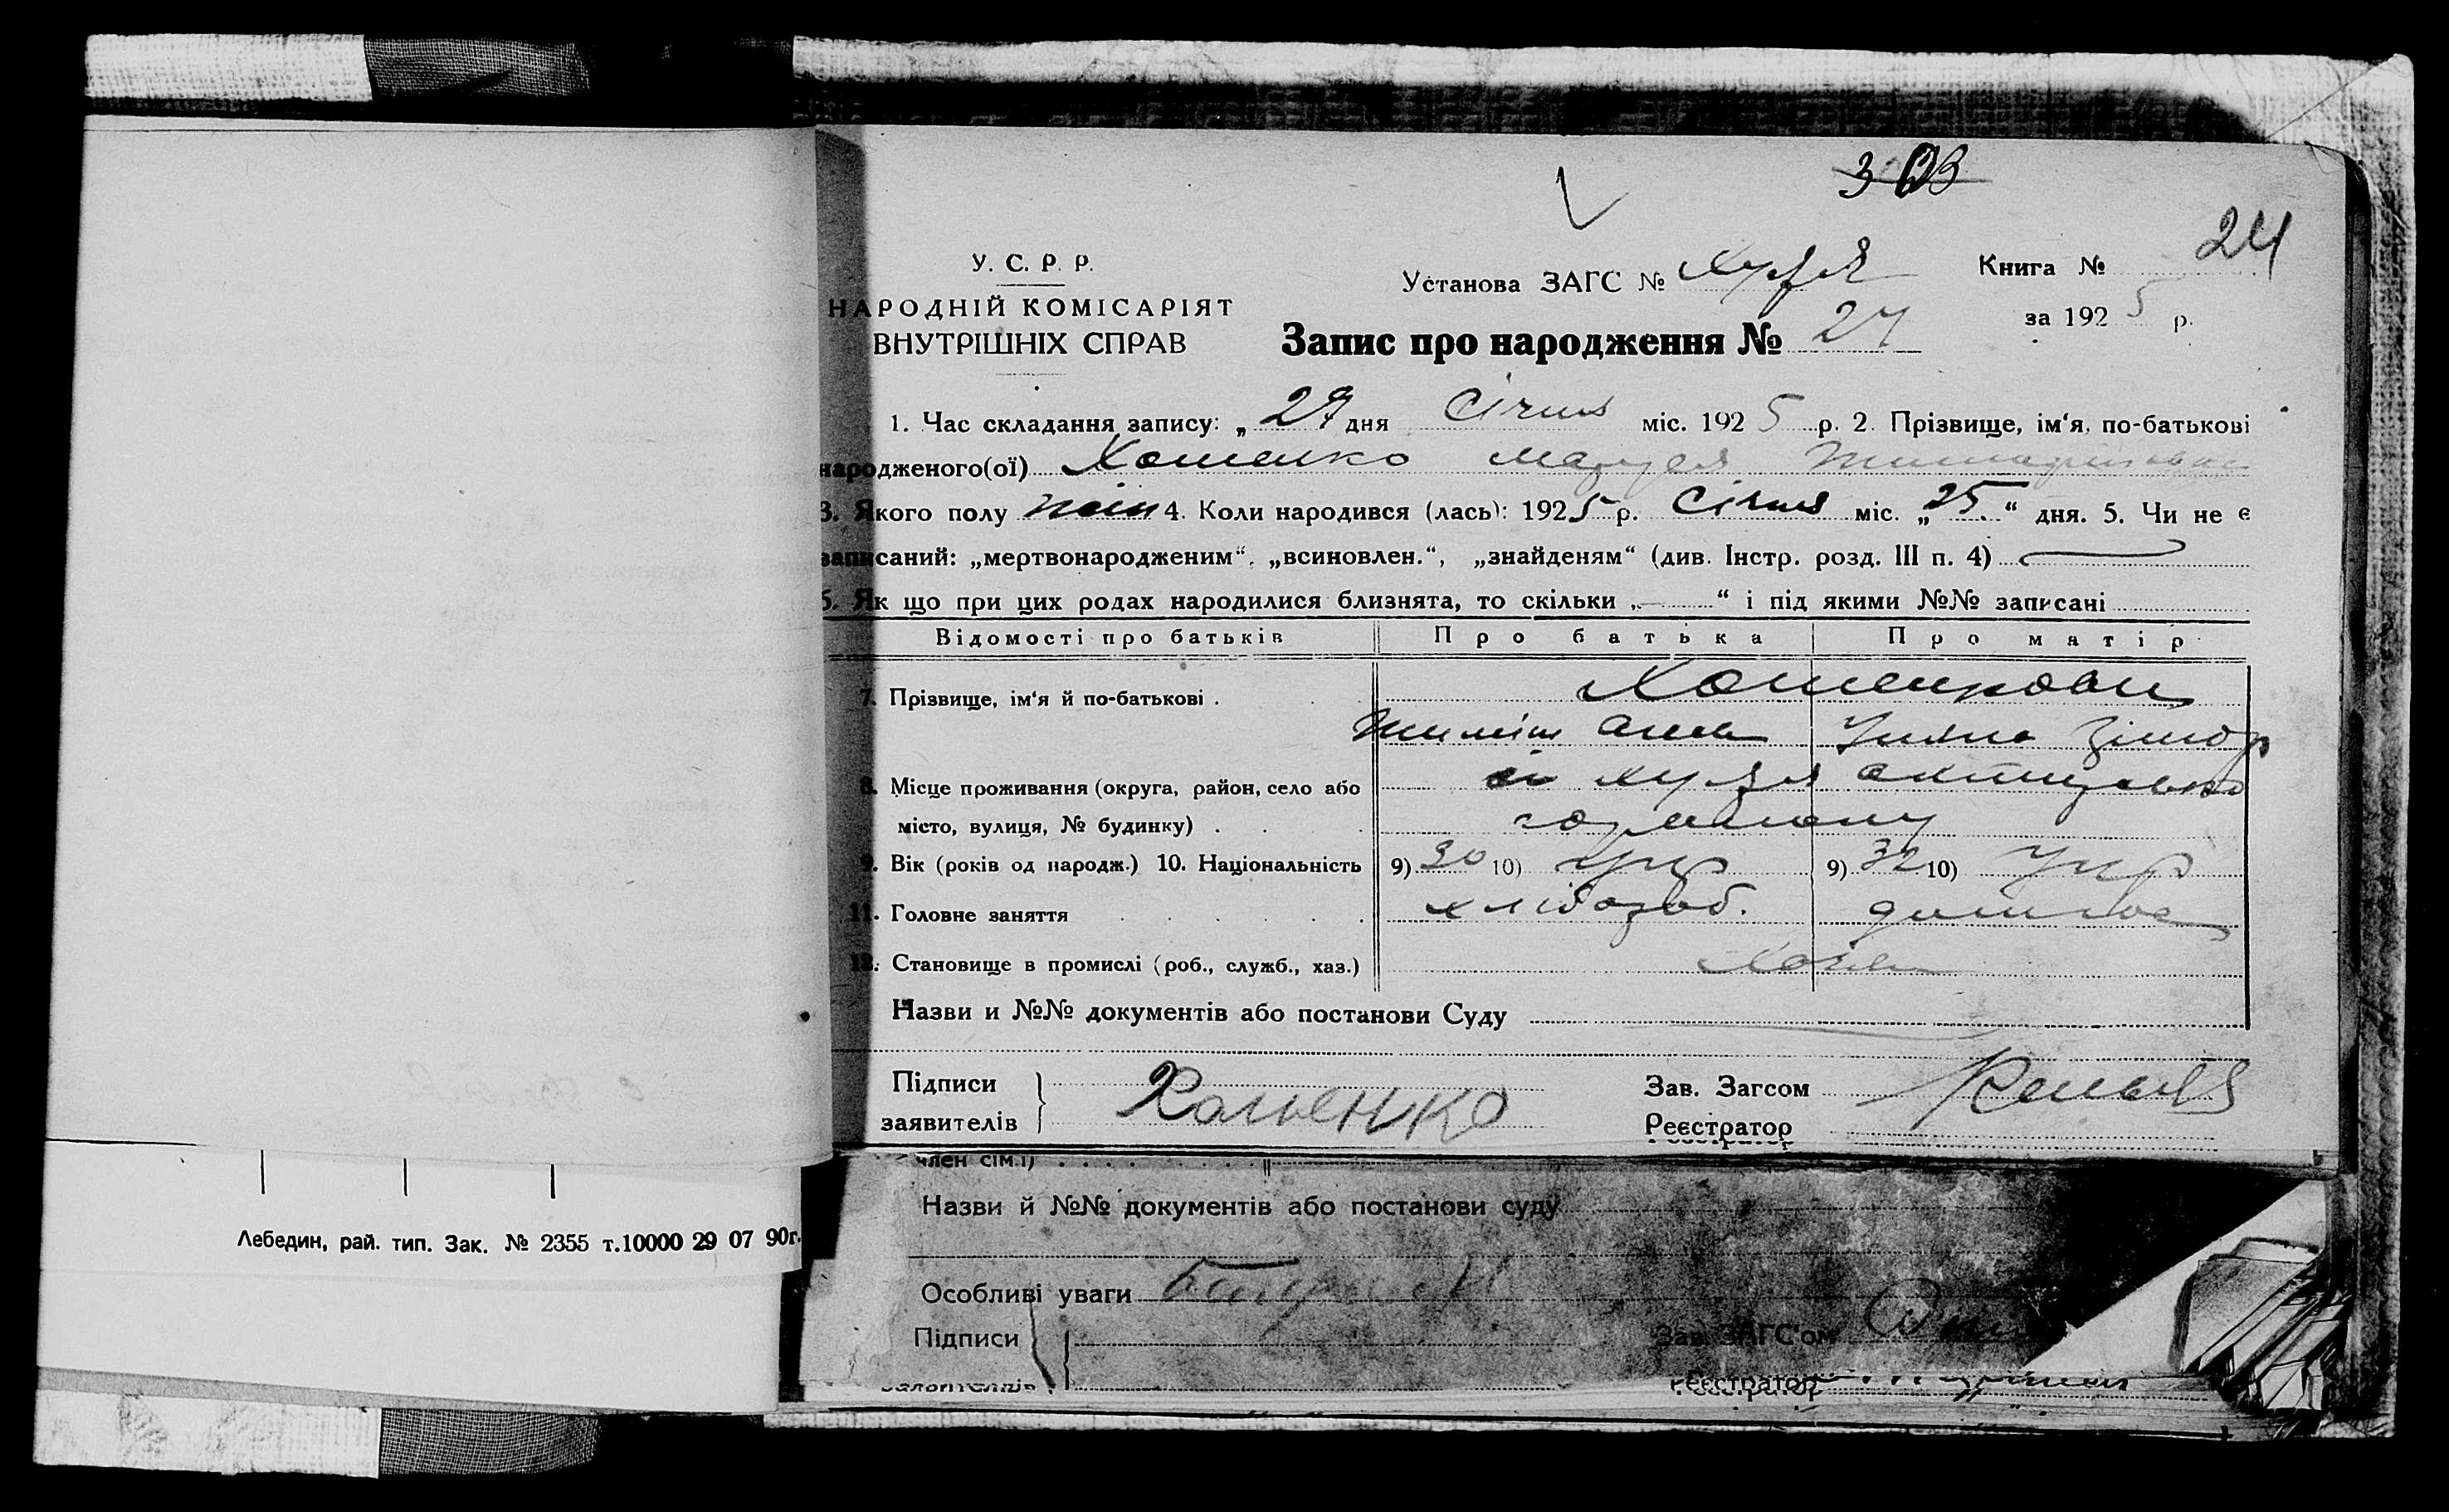 303
24
У. С. Р. Р.
НАРОДНІЙ КОМІСАРІЯТ
ВНУТРІШНІХ СПРАВ
Установа ЗАГС №
Книга №
за 1925 р.
Запис про народження № 27
1. Час складання запису: „ 27 дня Січня міс. 1925 р. 2. Прізвище, ім'я, по-батькові
народженого(ої) Хоменко
3. Якого полу жін 4. Коли народився (лась): 1925 р. Січня міс. „25“ дня. 5. Чи не є
записаний: „мертвонародженим“, „всиновлен.“, „знайденям“ (див. Інстр. розд. III п. 4)
6. Як що при цих родах народилися близнята, то скільки „ “ і під якими №№ записані
Відомості про батьків Про батька Про матір
7. Прізвище, ім'я й по-батькові .
8. Місце проживання (округа, район, село або
місто, вулиця, № будинку) .
9. Вік (років од народж.) 10. Національність 9) 30 10) укр 9) 32 10) укр
11. Головне заняття хлібороб.
12. Становище в промислі (роб., служб., хаз.)
Назви и №№ документів або постанови Суду
Підписи
заявителів
Хоменко
Зав. Загсом
Реєстратор
член сім'ї)
Назви й №№ документів або постанови суду
Особливі уваги
Підписи
Зав. ЗАГС'ом
Реєстратор
Лебедин, рай. тип. Зак. № 2355 т.10000 29 07 90г.